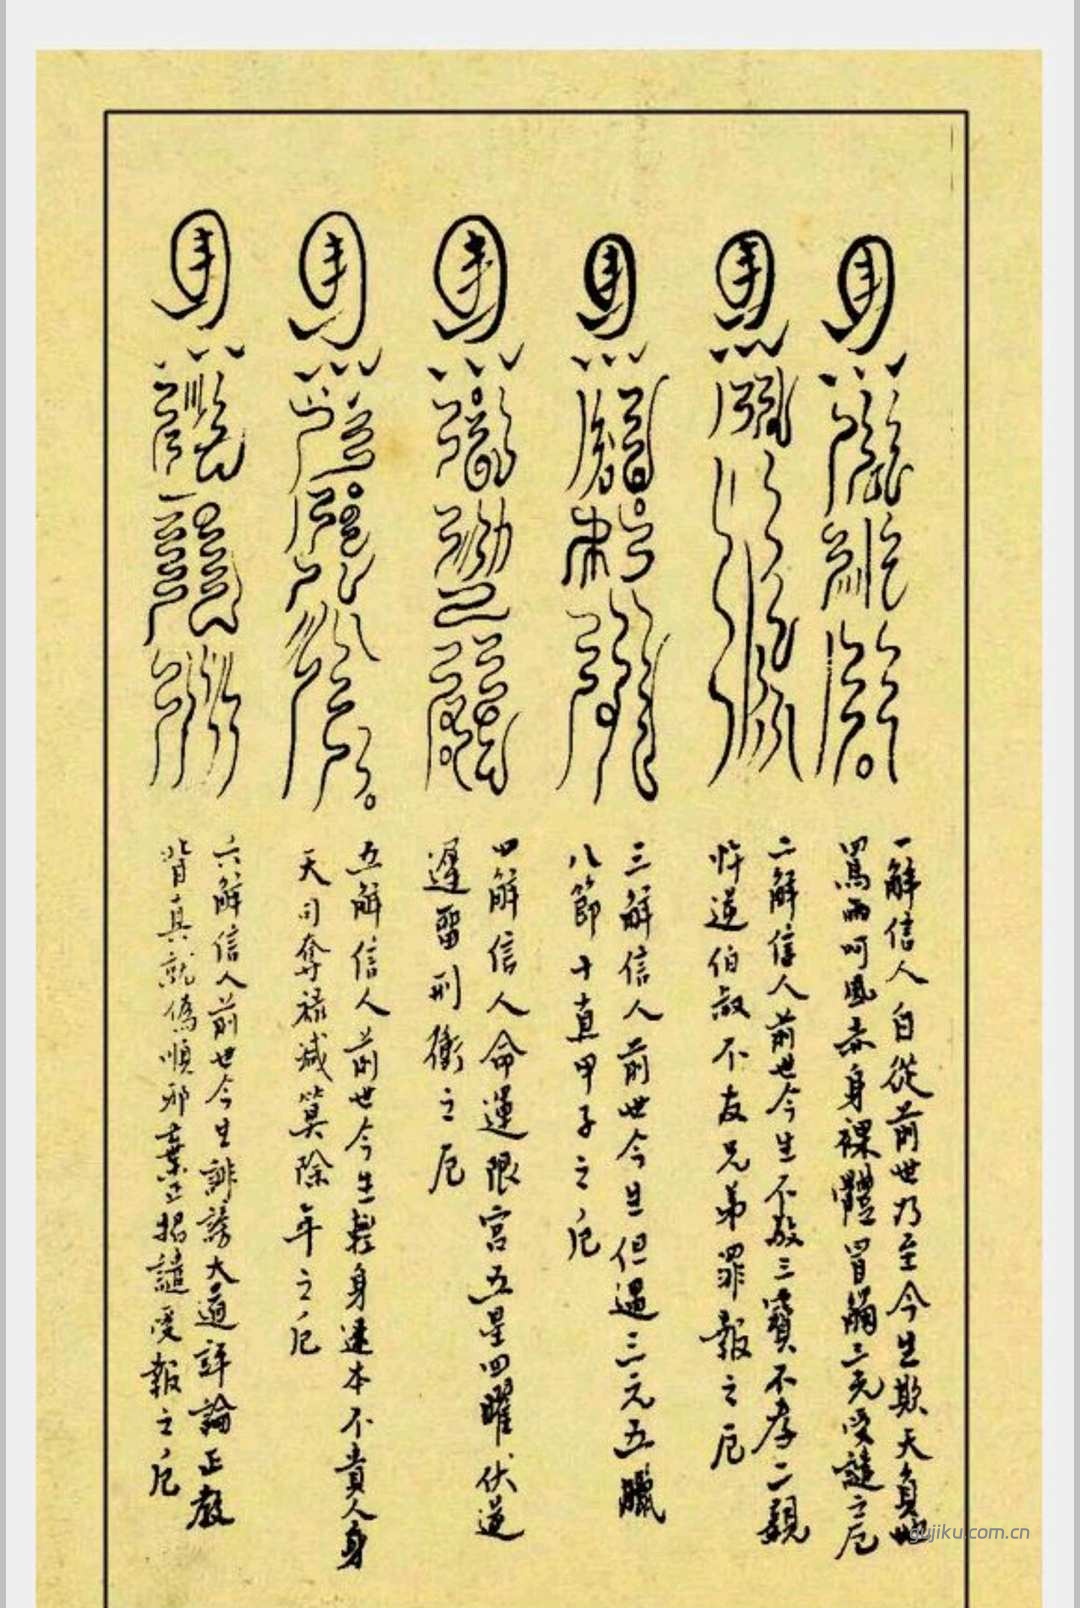 一解信人自從前世乃至今生欺天負地
罵雨呵風赤身裸體冒觸三光受譴之厄
二解信人前世今生不敬三寶不孝二親
忤逆伯叔不友兄弟罪報之厄
三解信人前世今生但遇三元五臘
八節十直甲子之厄
四解信人命運限宮五星四曜伏逆
遲留刑衝之厄
五解信人前世今生輕身迷本不貴人身
天司奪祿減算除年之厄
六解信人前世今生誹謗大道評論正教
背真就偽順邪棄正招譴受報之厄
gujiku.com.cn